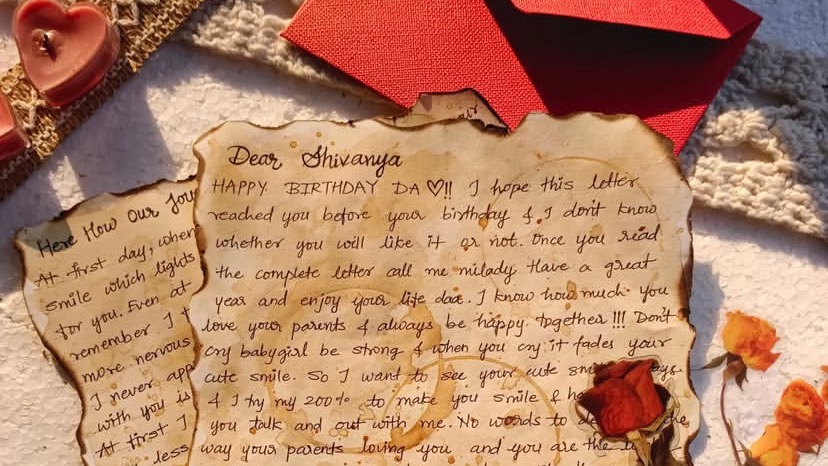 Here How Our
At first day, when
smile which lights
for you. Even at
remember I
more nervous
I never
with you is
At first I
less
Dear Shivanya
HAPPY BIRTHDAY DA ♡!! I hope this letter
reached you before your birthday & I don't know
whether you will like it or not. Once you read
the complete letter call me milady. Have a great
year and enjoy your life daa. I know how much you
love your parents & always be happy together!!! Don't
cry babygirl be strong & when you cry it fades your
cute smile. So I want to see your cute
& I try my 200% to make you smile &
you talk and out with me. No words to
way your parents loving you and you are the